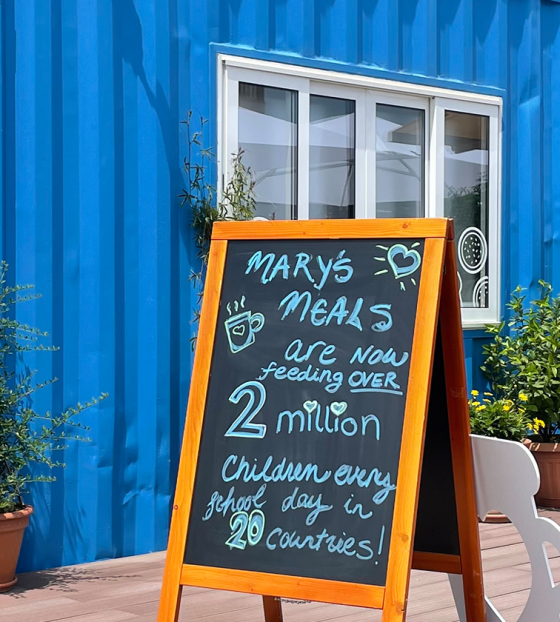 MARY'S
MEALS
are NOW
feeding OVER
2 million
Children every
school day in
20 countries!